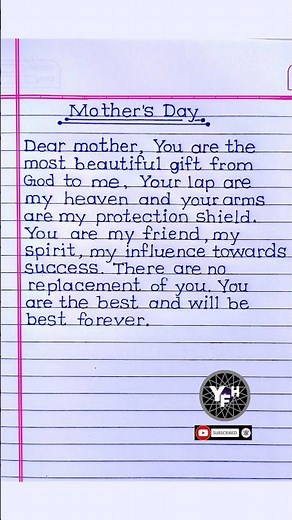 Mother's Day
Dear mother, You are the
most beautiful gift from
God to me. Your lap are
my heaven and your arms
are my protection shield.
You are my friend, my
spirit, my influence towards
success. There are no
replacement of you. You
are the best and will be
best forever.
YFH
SUBSCRIBED